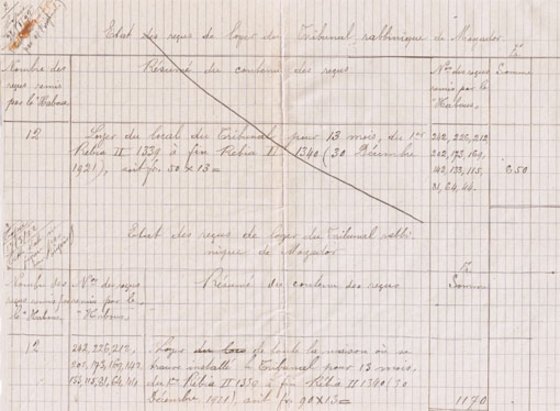 Etat des reçus de loyer du Tribunal rabbinique de Mogador
Nombre des reçus remis par le "Habous"
Résumé du contenu des reçus
Nos des reçus remis par les "Habous"
Fr
Somme
12
Loyer du local du Tribunal pour 13 mois, du 1er
Rebia II 1339 à fin Rebia II 1340 (30 Décembre
1921), soit fr. 50 x 13 =
242, 226, 212
202, 173, 169,
142, 133, 115,
81, 64, 44.
650
Etat des reçus de loyer du Tribunal rabbi-
nique de Mogador
Nombre des reçus remis par le "Habous"
Nos des reçus remis par le "Habous"
Résumé du contenu des reçus
Fr
Somme
12
242, 226, 212,
202, 173, 169, 142,
133, 115, 81, 64, 44.
Loyer de toute la maison où se
trouve installé le Tribunal pour 13 mois,
du 1er Rébia II 1339 à fin Rébia II 1340 (30
Décembre 1921), soit fr. 90 x 13 =
1170